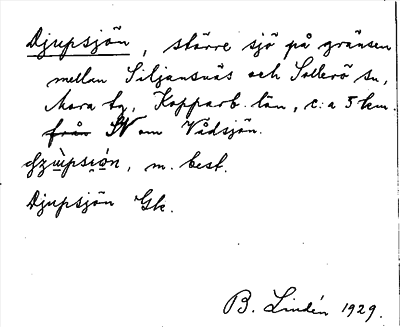 Djupsjön, större sjö på gränsen
mellan Siljansnäs och Sollerö sn,
Mora tg, Kopparb. län, c:a 5 km.
från SV om Vådsjön.
m. best.
Djupsjön Gk.
B. Lindén 1929.